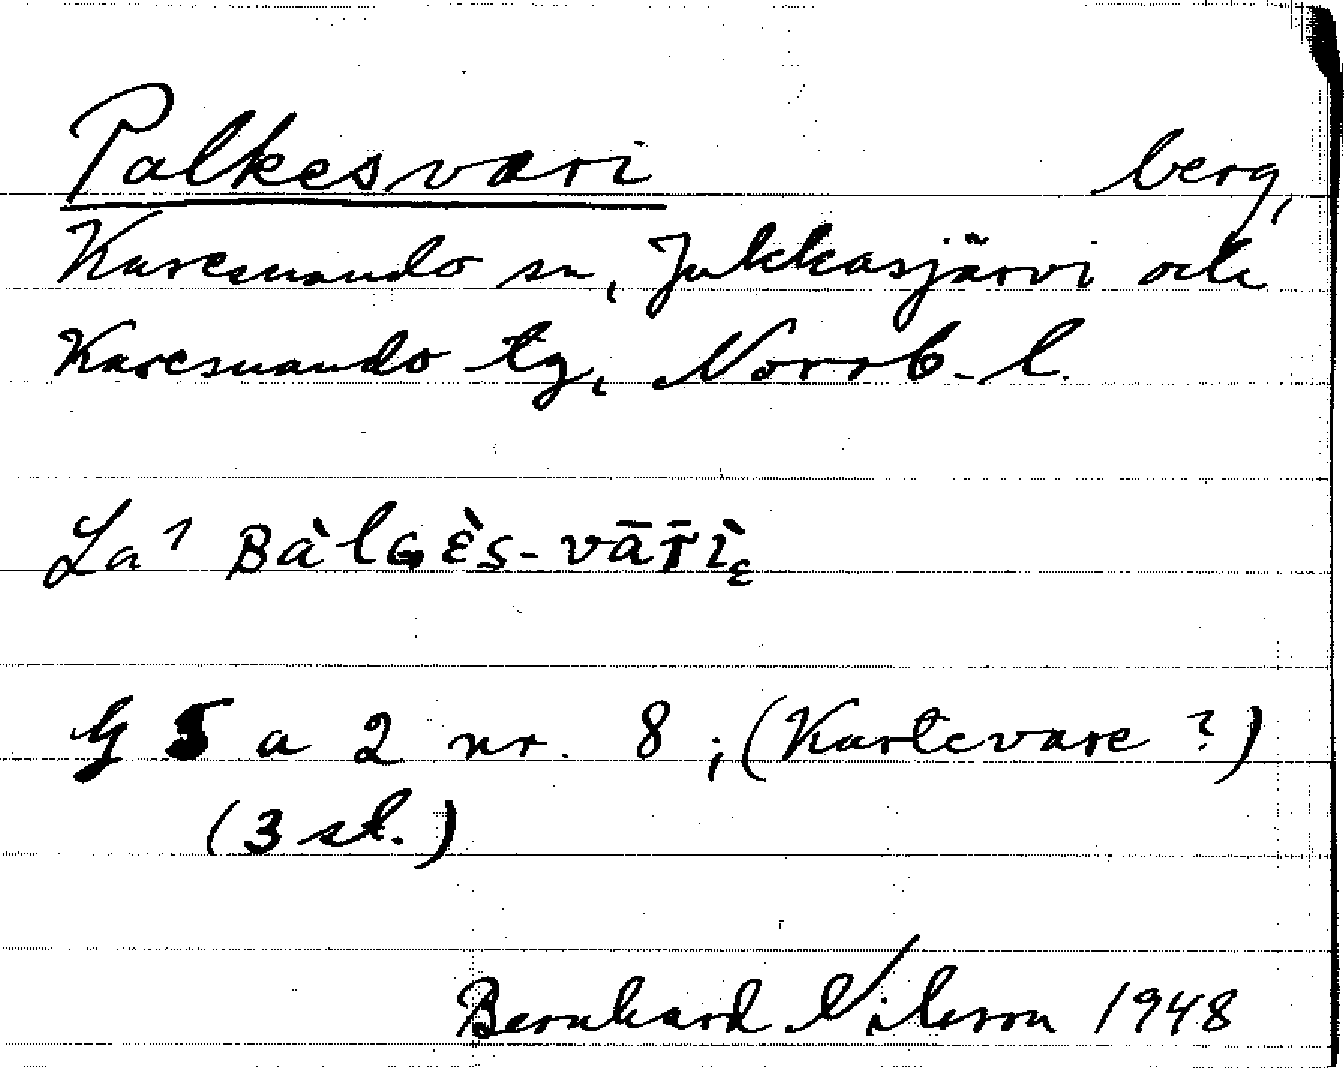 Palkesvari berg,
Karesuando sn, Jukkasjärvi och
Karesuando tg, Norrb. l.
La¹ Bàlgɛ̀s-vārì̄ᵋ
G 5 a 2 nr. 8 ; (Kartevare ?)
(3 st.)
Bernhard Nilsson 1948